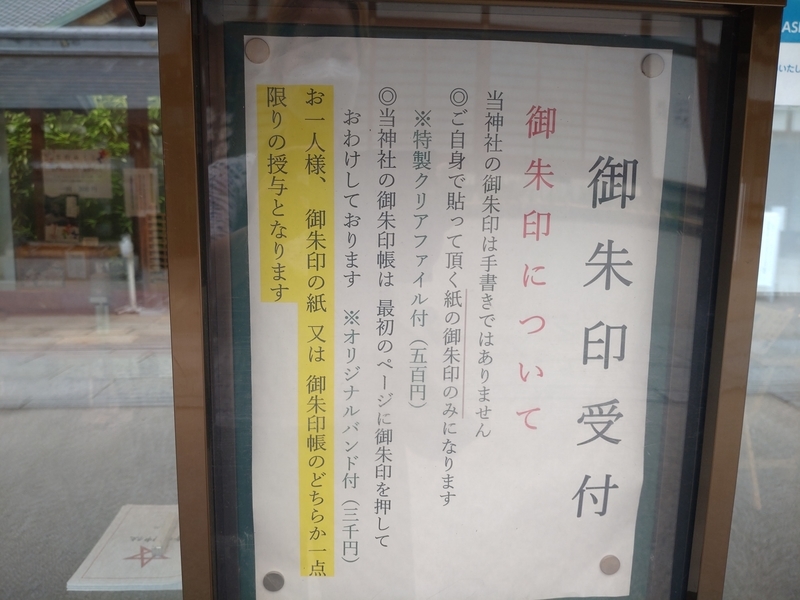 御朱印受付
御朱印について
当神社の御朱印は手書きではありません
◎ご自身で貼って頂く紙の御朱印のみになります
※特製クリアファイル付（五百円）
◎当神社の御朱印帳は 最初のページに御朱印を押して
おわけしております ※オリジナルバンド付（三千円）
お一人様、 御朱印の紙 又は 御朱印帳のどちらか一点
限りの授与となります